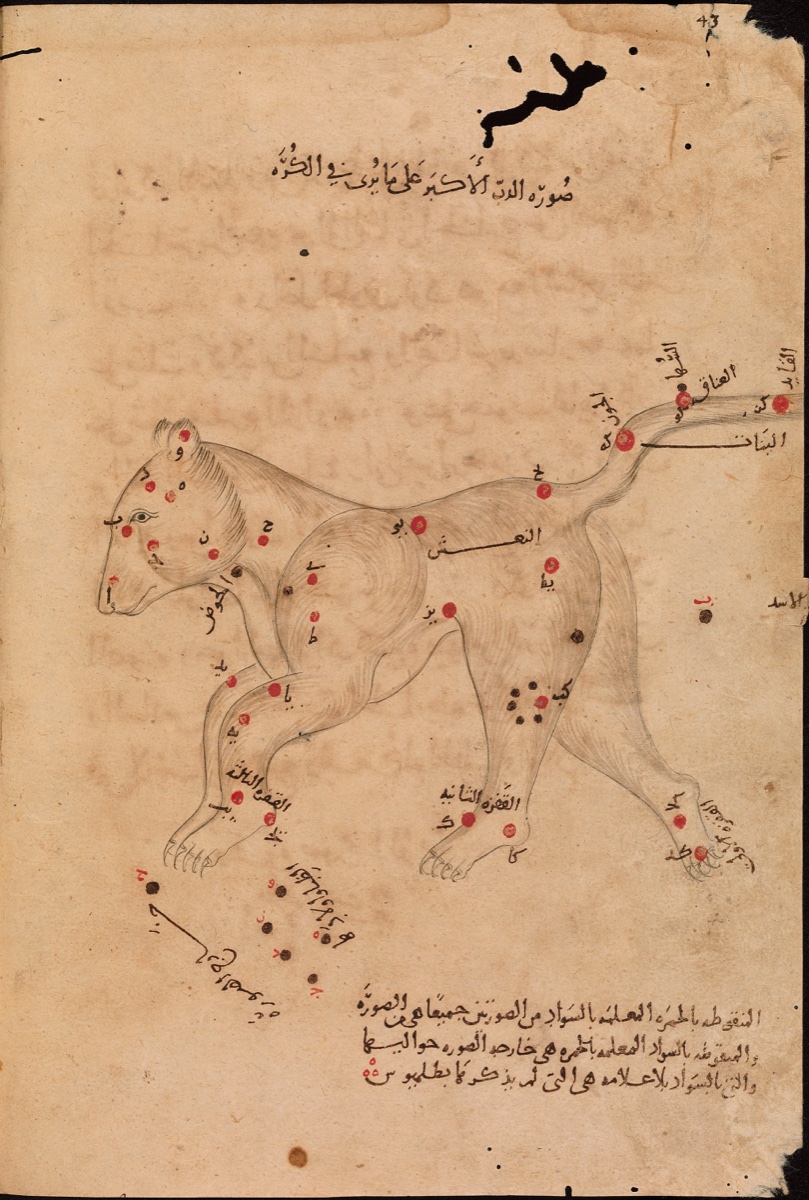 43
صُورَه الدبّ الأَكبَر عَلى مَا يُرى في الكُرَه
السُّها
العناق
القايد
الجون
البنات
النعش
الحوض
الاسد
القفزه الثالثه
القفزه الثانيه
القفزه الاولى
الظبا واولادها
خارج الصوره
المنقوطه بالحمره المعلمه بالسَواد من الصورتين جميعًا هي من الصورَه
والمنقوطه بالسواد المعلمه بالحمره هي خارجه الصوره حواليها
والتي بالسَوَاد بلا علامه هي التي لم يذكرها بطلميوس